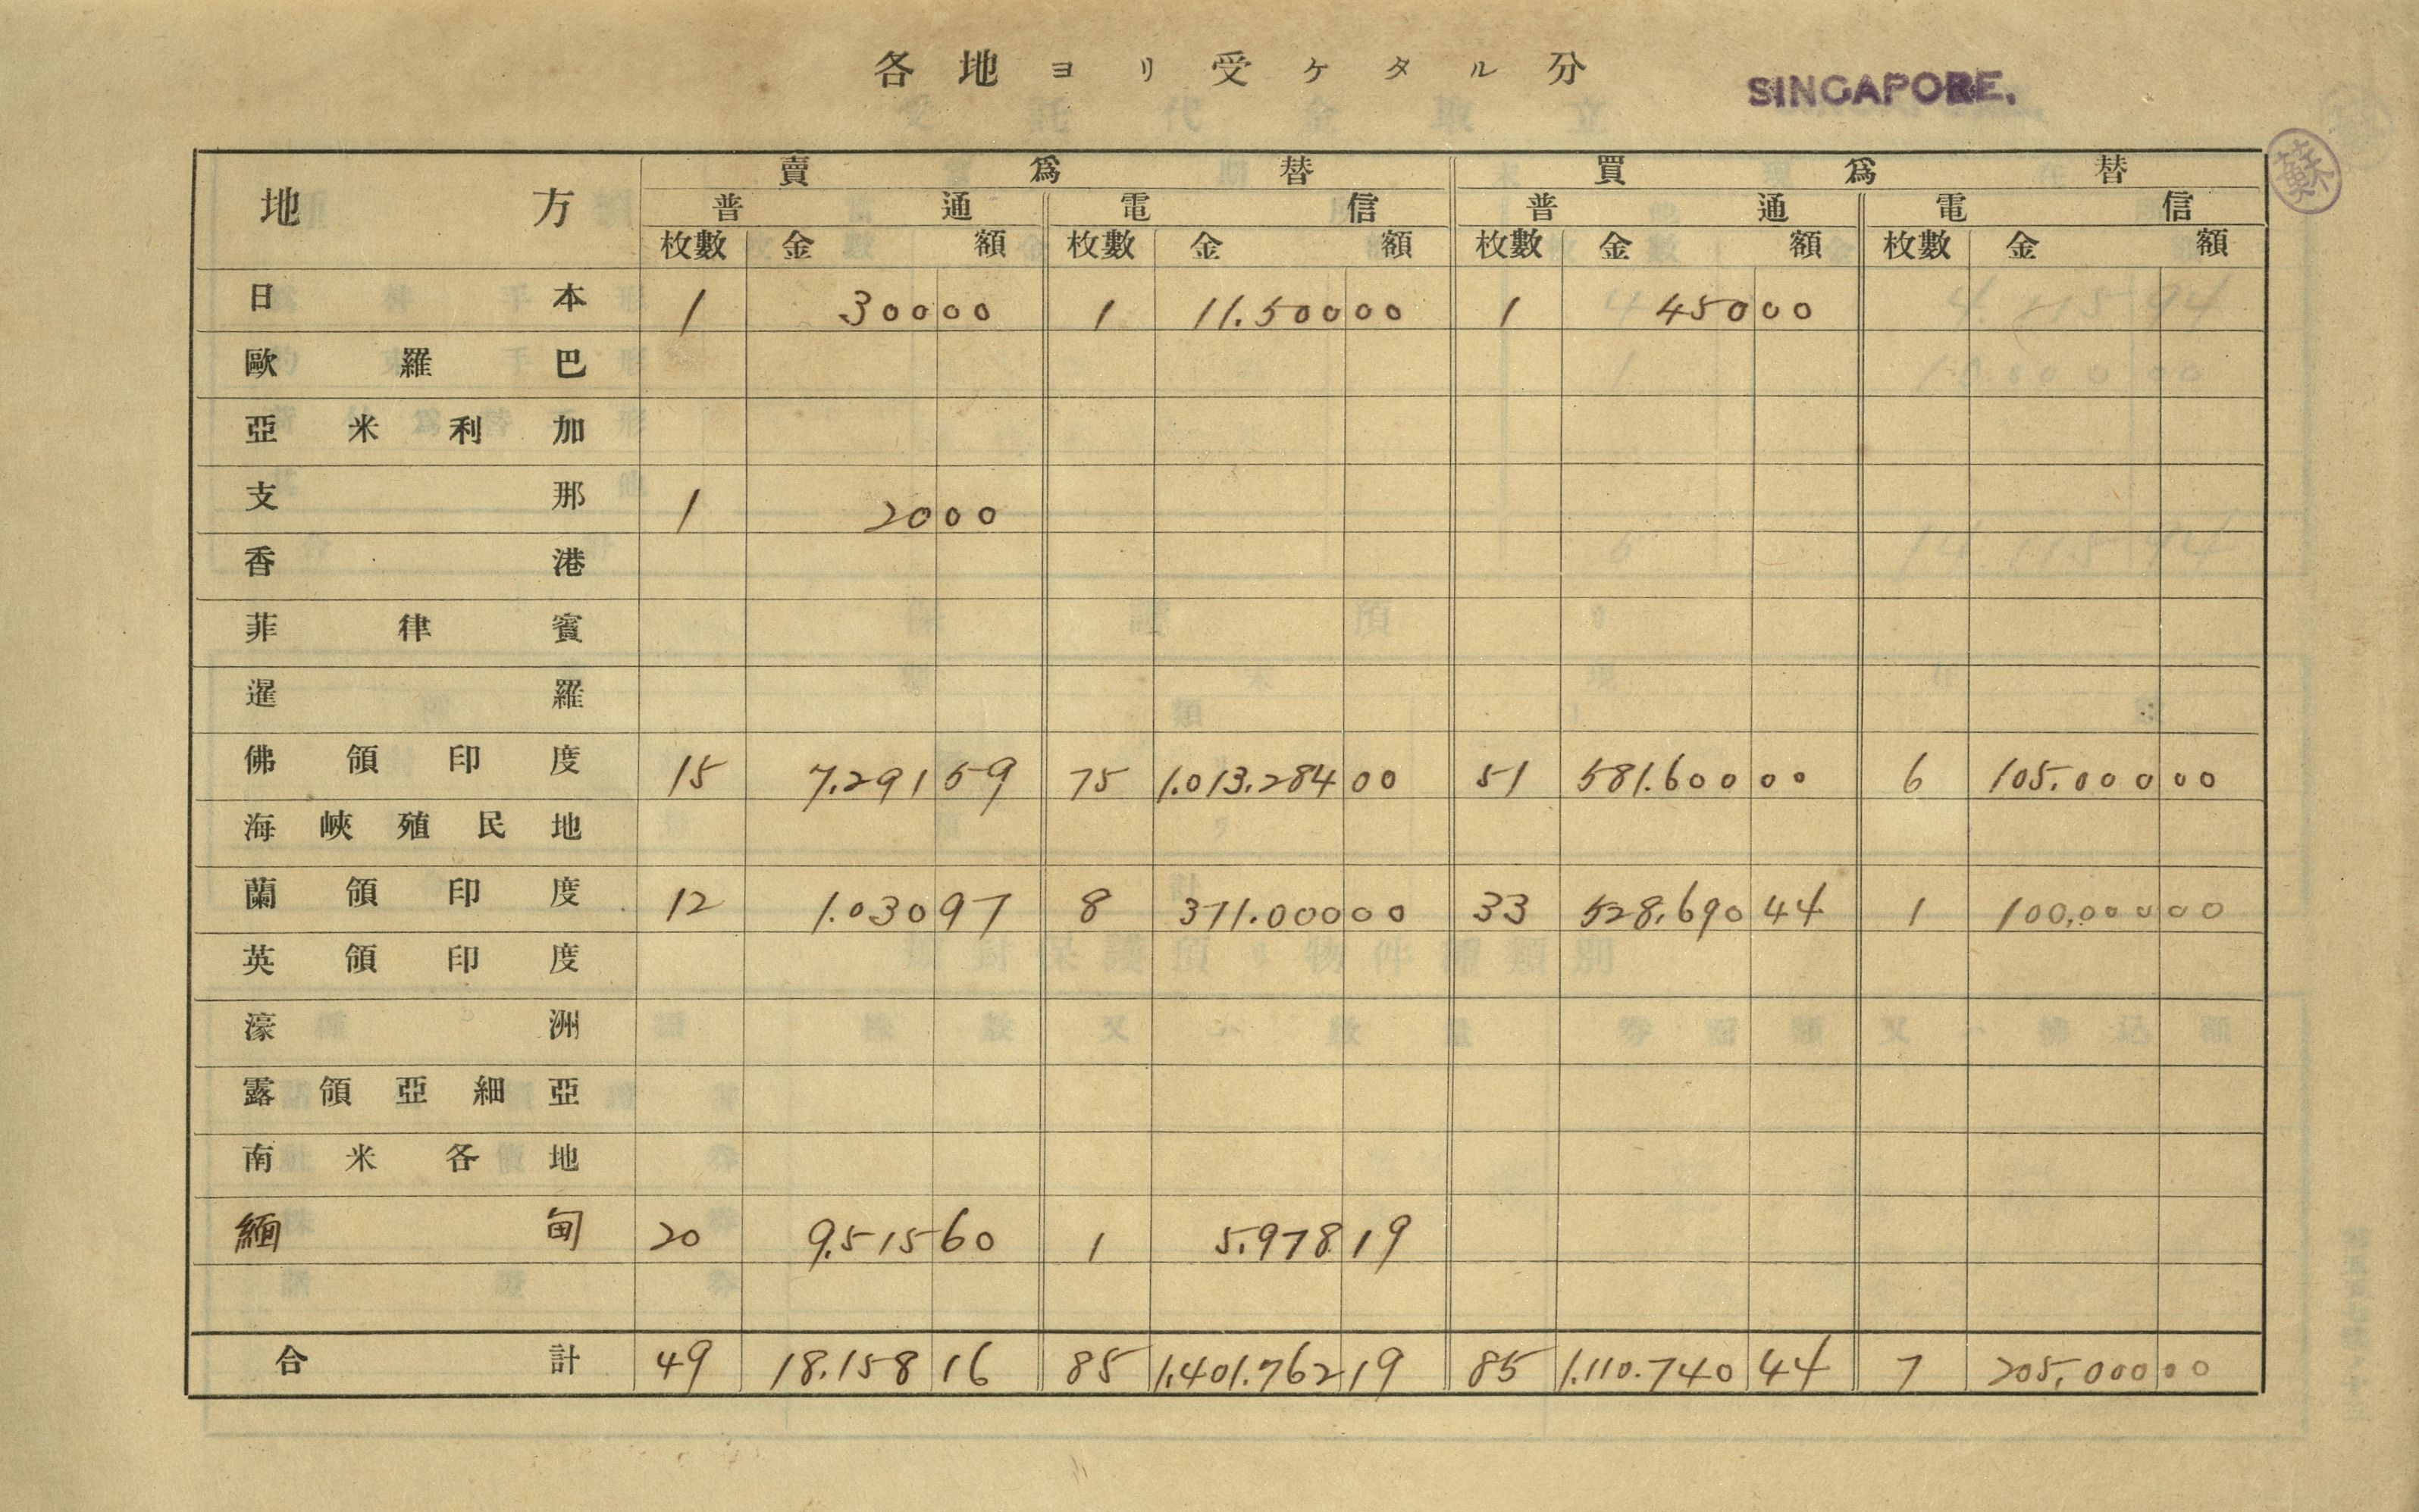 各地ヨリ受ケタル分
SINGAPORE.
蘇
地方 賣爲替 買爲替
普通 電信 普通 電信
枚數 金額 枚數 金額 枚數 金額 枚數 金額
日本 1 300 00 1 11.500 00 1 450 00
歐羅巴
亞米利加
支那 1 20 00
香港
菲律賓
暹羅
佛領印度 15 7.291 59 75 1.013.284 00 51 581.600 00 6 105.000 00
海峽殖民地
蘭領印度 12 1.030 97 8 371.000 00 33 528.690 44 1 100.000 00
英領印度
濠洲
露領亞細亞
南米各地
緬甸 20 9.515 60 1 5.978 19
合計 49 18.158 16 85 1.401.762 19 85 1.110.740 44 7 205.000 00